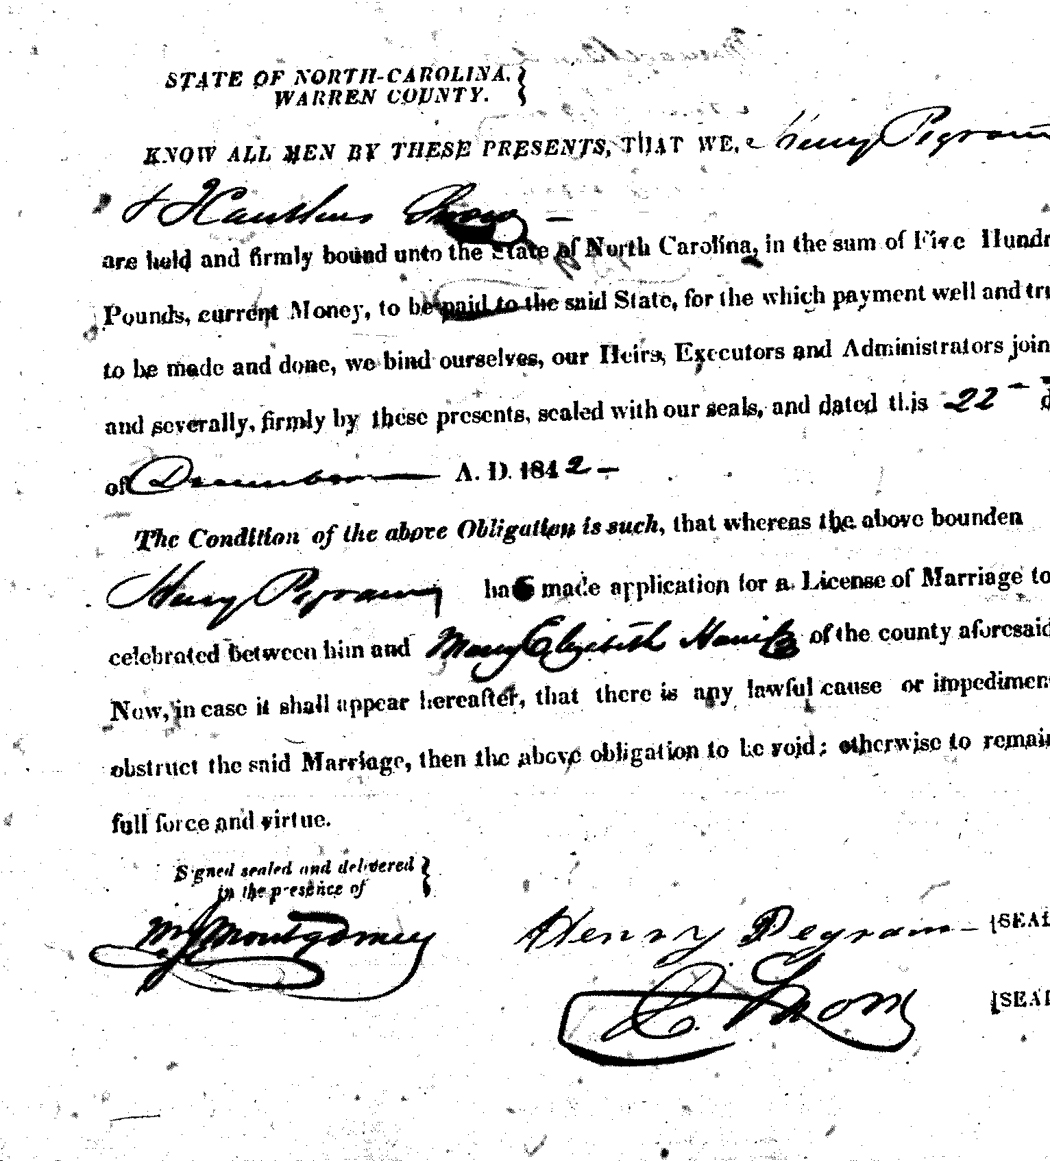 STATE OF NORTH-CAROLINA.
WARREN COUNTY.
KNOW ALL MEN BY THESE PRESENTS, THAT WE, Henry Pegram
& Snow
are held and firmly bound unto the State of North Carolina, in the sum of Five Hundr
Pounds, current Money, to be paid to the said State, for the which payment well and tru
to be made and done, we bind ourselves, our Heirs, Executors and Administrators join
and severally, firmly by these presents, sealed with our seals, and dated this 22 d
of December A. D. 1842
The Condition of the above Obligation is such, that whereas the above bounden
Henry Pegram has made application for a License of Marriage to
celebrated between him and Mary Elizabeth of the county aforesaid
Now, in case it shall appear hereafter, that there is any lawful cause or impedimen
obstruct the said Marriage, then the above obligation to be void; otherwise to remain
full force and virtue.
Signed sealed and delivered
in the presence of
Montgomery
Henry Pegram [SEAL
Snow [SEAL